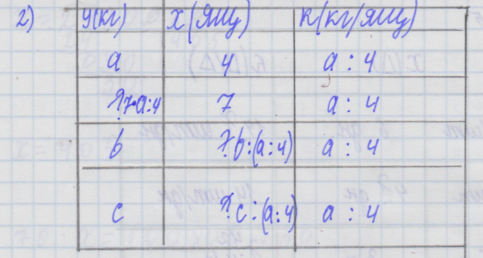 2) У(кг) Х(Ящ) К(кг/ящ)
а 4 а : 4
? 7•а:4 7 а : 4
b ? b:(а:4) а : 4
с ? с:(а:4) а : 4